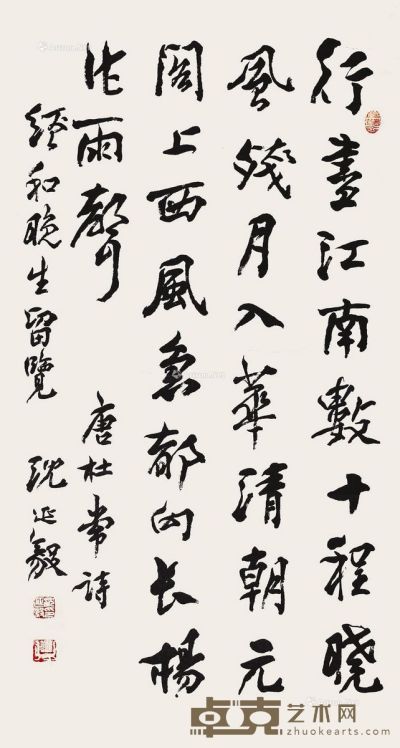 行盡江南數十程曉
風殘月入華清朝元
閣上西風急都向長楊
作雨聲
唐杜常詩
經和晚生留覽 沈延毅
卓克艺术网
www.zhuokearts.com